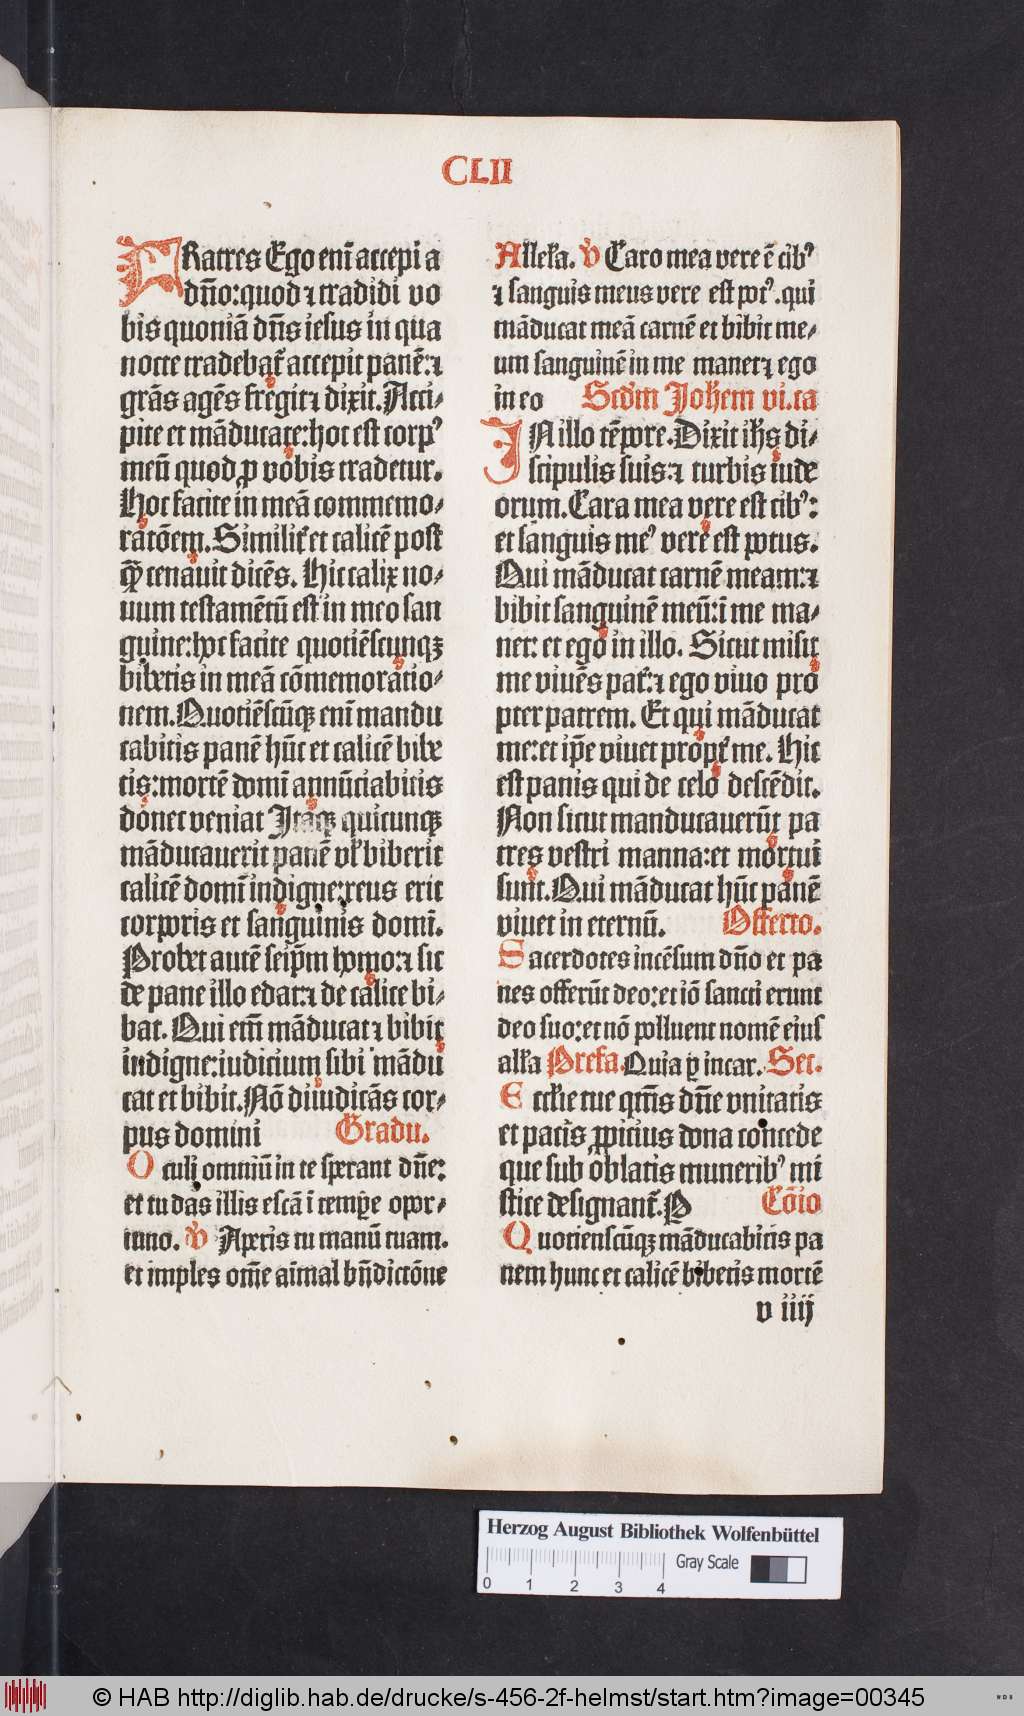 CLII
FRatres Ego enī accepi a
dn̄o: quod ⁊ tradidi vo
bis quoniā dn̄s iesus in qua
nocte tradebat᷑ accepit panē: ⁊
grās agēs fregit ⁊ dixit. Acci⸗
pite et māducate: hoc est corpꝰ
meū quod ꝓ vobis tradetur.
Hoc facite in meā commemo⸗
ratōem. Similit᷑ et calicē post
qꝫ cenauit dicēs. Hic calix no⸗
uum testamētū est in meo san
guine: hoc facite quotiēscunqꝫ
bibetis in meā cōmemoratio⸗
nem. Quotiēscūqꝫ enī mandu
cabitis panē hūc et calicē bibe
tis: mortē domī annūciabitis
donec veniat Itaqꝫ quicunqꝫ
māducauerit panē vl̓ biberit
calicē domī indigne: reus erit
corporis et sanguinis domī.
Probet autē seip̄m homo: ⁊ sic
de pane illo edat: ⁊ de calice bi⸗
bat. Qui em̄ māducat ⁊ bibit
indigne: iudicium sibi mādu
cat et bibit. Nō diiudicās cor⸗
pus domini Gradu.
Oculi omniū in te sperant dn̄e:
et tu das illis escā ī temp̄e opor⸗
tuno. ℣ Aperis tu manū tuam.
et imples om̄e aīmal bn̄dictōne
Allel̓a. ℣ Caro mea vere ē cibꝰ
⁊ sanguis meus vere est potꝰ. qui
māducat meā carnē et bibit me⸗
um sanguinē in me manet ⁊ ego
in eo Scd̓m Joh̓em vi. ca
IN illo tēpore. Dixit ih̄s di⸗
scipulis suis: ⁊ turbis iude
orum. Cara mea vere est cibꝰ:
et sanguis meꝰ vere est potus.
Qui māducat carnē meam: ⁊
bibit sanguinē meū: ī me ma⸗
net: et ego in illo. Sicut misit
me viuēs pat᷑: ⁊ ego viuo pro
pter patrem. Et qui māducat
me: et ip̄e viuet propt᷑ me. Hic
est panis qui de celo descēdit.
Non sicut manducauerūt pa
tres vestri manna: et mortui
sunt. Qui māducat hūc panē
viuet in eternū. Offerto.
Sacerdotes incēsum dn̄o et pa
nes offerūt deo: et iō sancti erunt
deo suo: et nō polluent nomē eius
all̓a Prefa. Quia ꝑ incar. Sec.
Eccl̓ie tue qm̄s dn̄e vnitatis
et pacis ꝓpicius dona concede
que sub oblatis muneribꝰ mi
stice designant᷑. P Cōio
Quotienscūqꝫ māducabitis pa
nem hunc et calicē bibetis mortē
v iiij
Herzog August Bibliothek Wolfenbüttel
Gray Scale
0 1 2 3 4
© HAB http://diglib.hab.de/drucke/s-456-2f-helmst/start.htm?image=00345